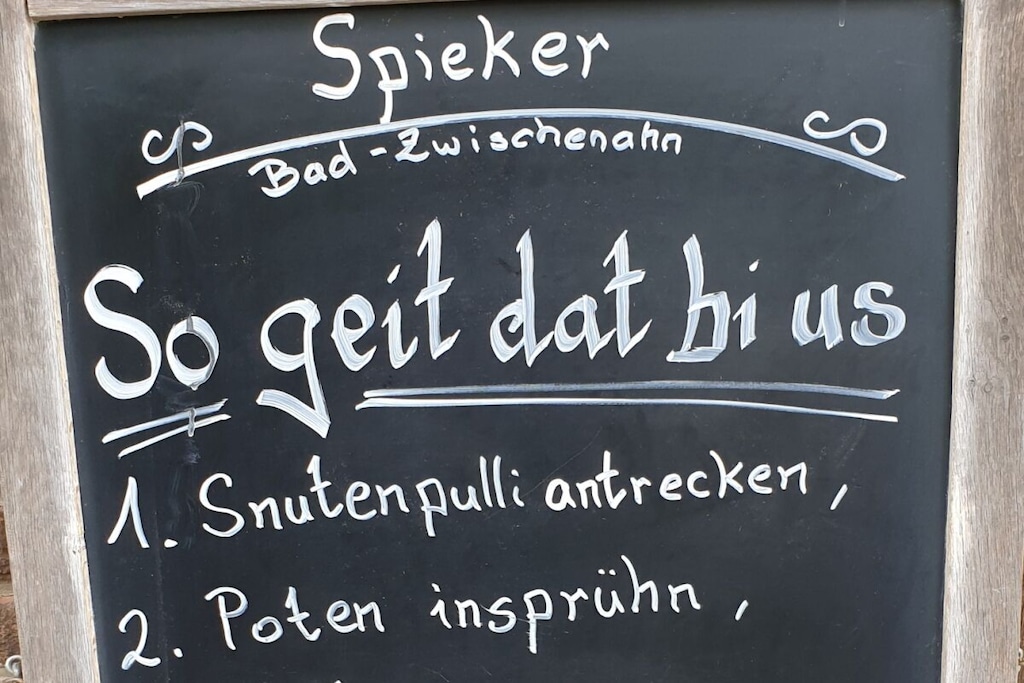 Spieker
Bad-Zwischenahn
So geit dat bi us
1. Snutenpulli antrecken,
2. Poten insprühn,